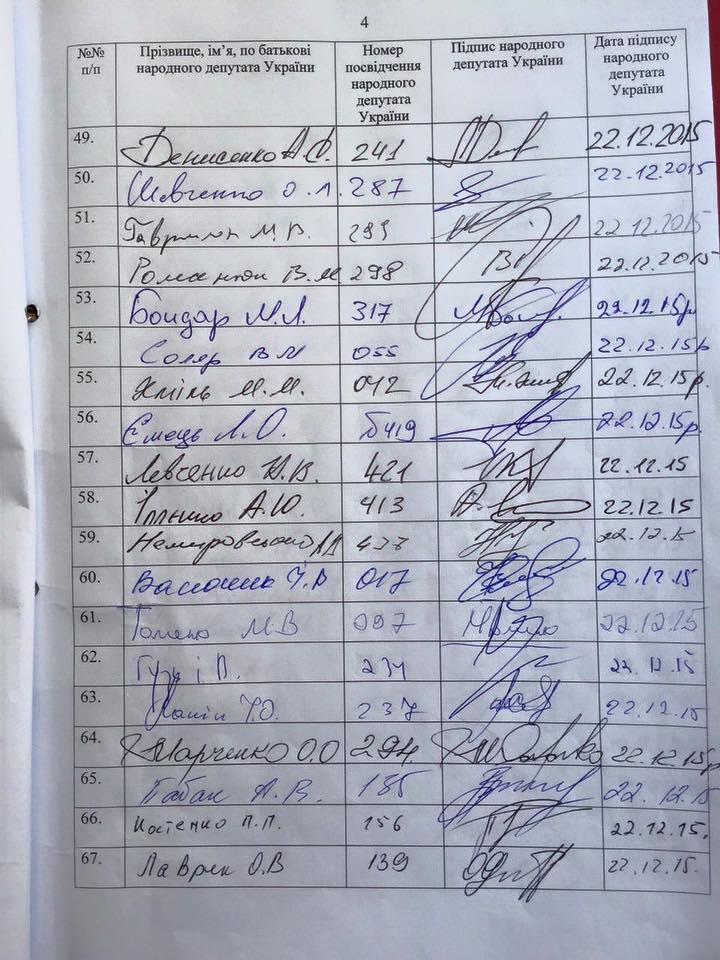 4
№№ п/п Прізвище, ім’я, по батькові народного депутата України Номер посвідчення народного депутата України Підпис народного депутата України Дата підпису народного депутата України
49. Денисенко А.С. 241 22.12.2015
50. Шевченко О.Л. 287 22.12.2015
51. Гаврилюк М.В. 22.12.2015
52. Романюк В.М 298 22.12.2015
53. Бондар М.Л. 317 22.12.15р
54. Солер ВМ 055 22.12.15р
55. Хміль М.М. 042 22.12.15р.
56. Ємець Л.О. 22.12.15р
57. Левченко 421 22.12.15
58. Іллєнко А.Ю. 413 22.12.15
59. Немировський 22.12.15
60. Васюник І.В 017 22.12.15
61. Томенко М.В 097 22.12.15
62. 22.12.15
63. 237 22.12.15
64. Марченко О.О 294 22.12.15р
65. Кабак А.В. 185 22.12.15
66. Костенко П.П. 156 22.12.15.
67. Лаврек О.В 139 22.12.15.